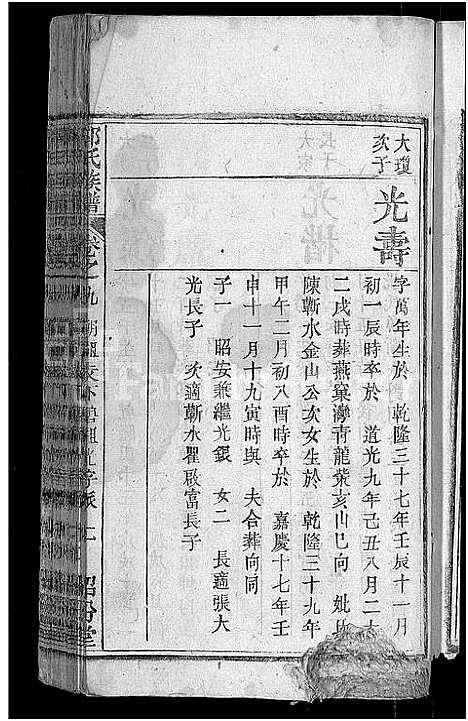 大瓊
次子
光壽
字萬年生於 乾隆三十七年壬辰十一月
初一辰時卒於 道光九年己丑八月二十
二戌時葬燕窠灣青龍紫亥山巳向 妣
陳蘄水金山公次女生於 乾隆三十九年
甲午二月初八酉時卒於 嘉慶十七年壬
申十一月十九寅時與 夫合葬向同
子一 昭安兼繼光銀 女二 長適張大
光長子 次適蘄水瞿啟富長子
氏族譜 卷之九